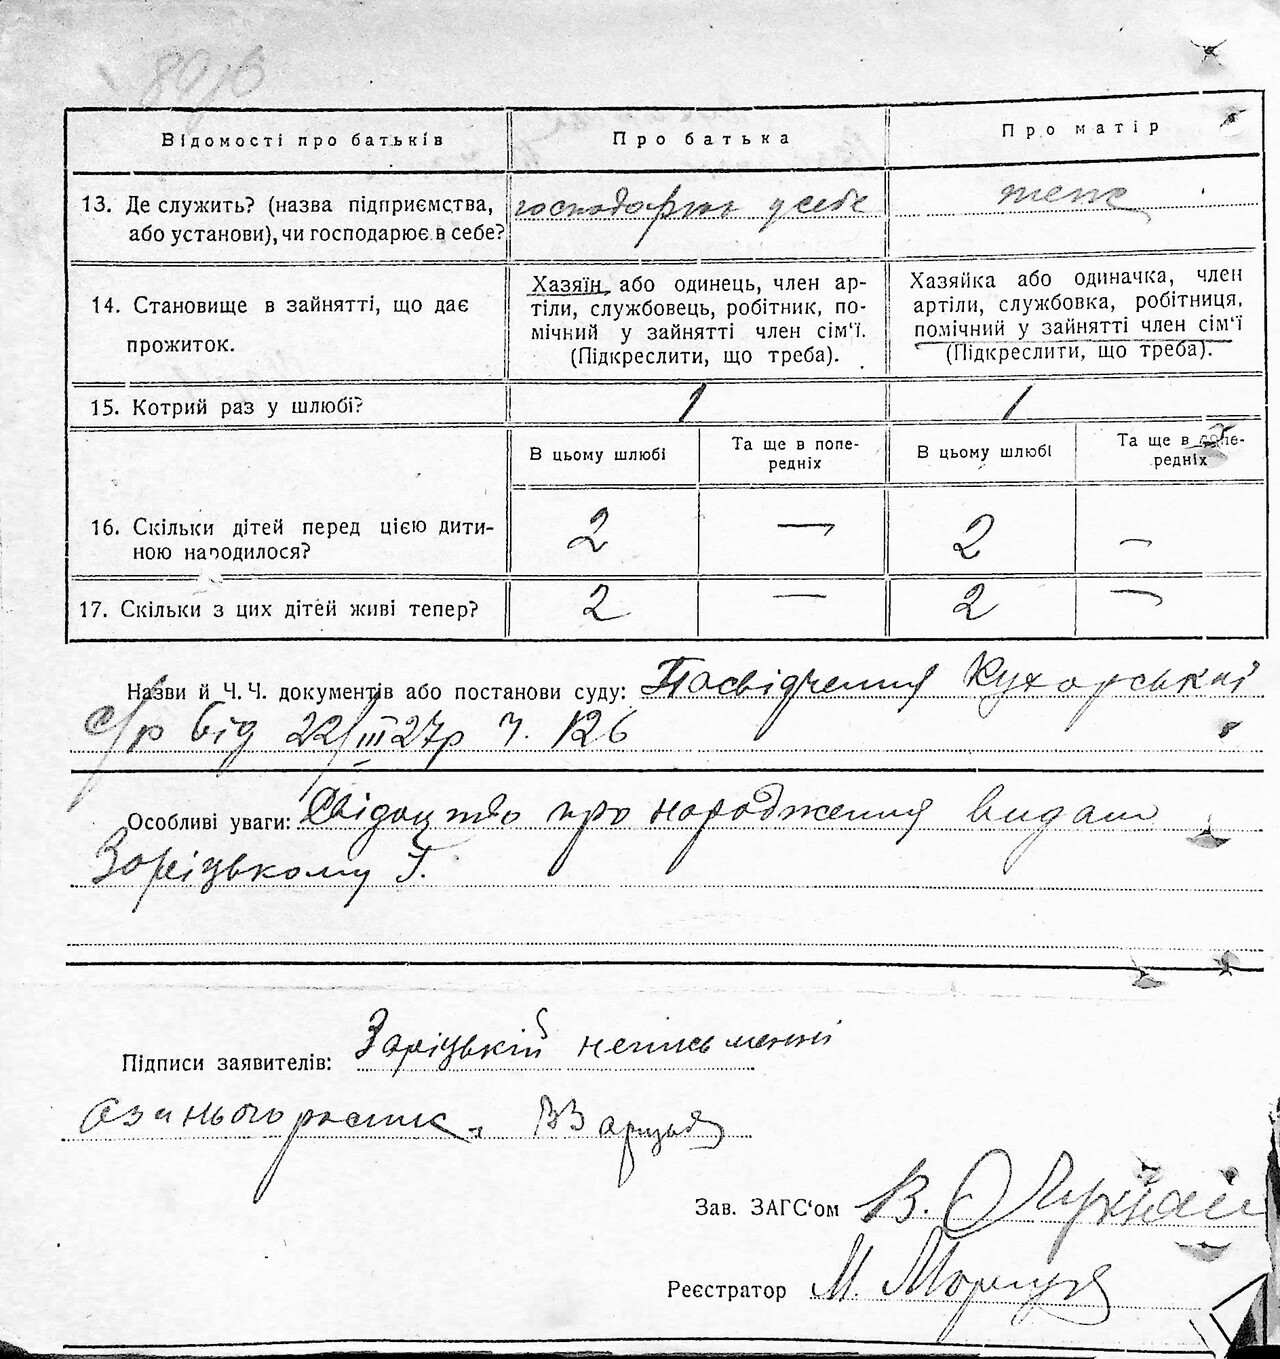 Відомості про батьків
Про батька
Про матір
13. Де служить? (назва підприємства,
або установи), чи господарює в себе?
господарює у себе
теж
14. Становище в зайнятті, що дає
прожиток.
Хазяїн, або одинець, член ар-
тіли, службовець, робітник, по-
мічний у зайнятті член сім'ї.
(Підкреслити, що треба).
Хазяйка або одиначка, член
артіли, службовка, робітниця,
помічний у зайнятті член сім'ї
(Підкреслити, що треба).
15. Котрий раз у шлюбі?
1
1
В цьому шлюбі
Та ще в попе-
редніх
В цьому шлюбі
Та ще в попе-
редніх
16. Скільки дітей перед цією дити-
ною народилося?
2
—
2
—
17. Скільки з цих дітей живі тепер?
2
—
2
—
Назви й Ч.Ч. документів або постанови суду: Посвідчення Кухарської
с/р від 22/III 27р Ч. 126
Особливі уваги: Свідоцтво про народження видано
Заріцькому Г.
Підписи заявителів: Заріцький неписьменні
а за нього
Зав. ЗАГС'ом В.
Реєстратор М.